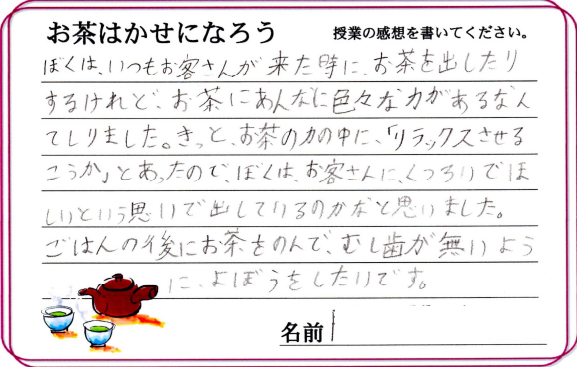 お茶はかせになろう 授業の感想を書いてください。
ぼくは、いつもお客さんが来た時に、お茶を出したり
するけれど、お茶にあんなに色々な力があるなん
てしりました。きっと、お茶の力の中に、「リラックスさせる
こうか」とあったので、ぼくは、お客さんに、くつろいでほ
しいという思いで出しているのかなと思いました。
ごはんの後にお茶をのんで、むし歯が無いよう
に、よぼうをしたいです。
名前